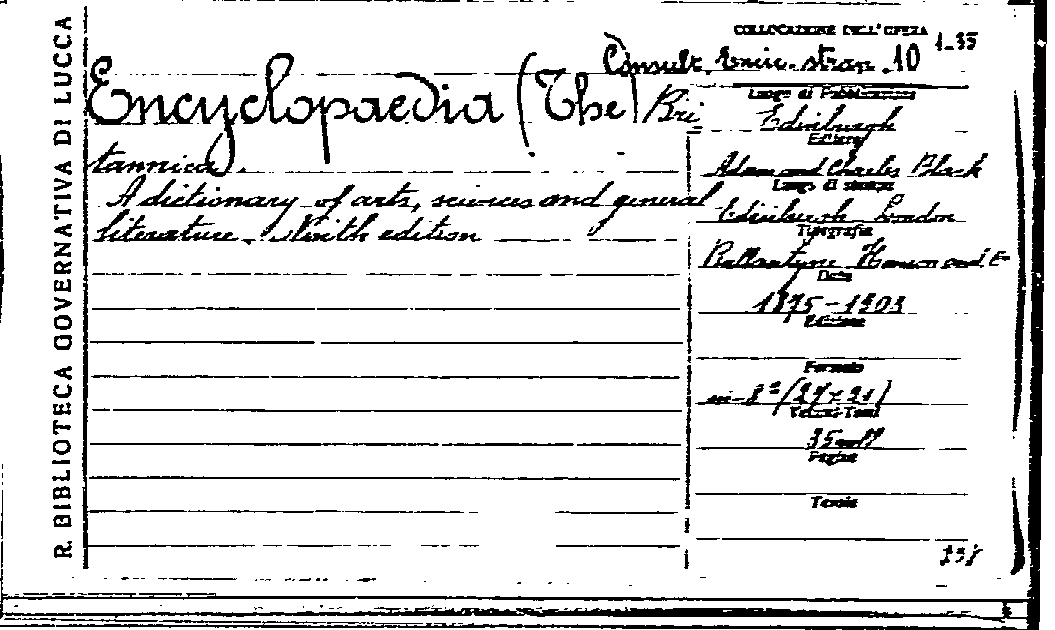 R. BIBLIOTECA GOVERNATIVA DI LUCCA
COLLOCAZIONE DELL'OPERA
Consult. Enic. stran. 10 1-35
Encyclopaedia (The) Bri
tannica.
A dictionary of arts, sciences and general
literature. Ninth edition
Luogo di Pubblicazione
Edinburgh
Editore
Adam and Charles Black
Luogo di stampa
Edinburgh London
Tipografia
Ballantyne Hanson and
Data
1875-1903
Edizione
Formato
in-8° (27×21)
Volumi-Tomi
35 voll
Pagine
Tavole